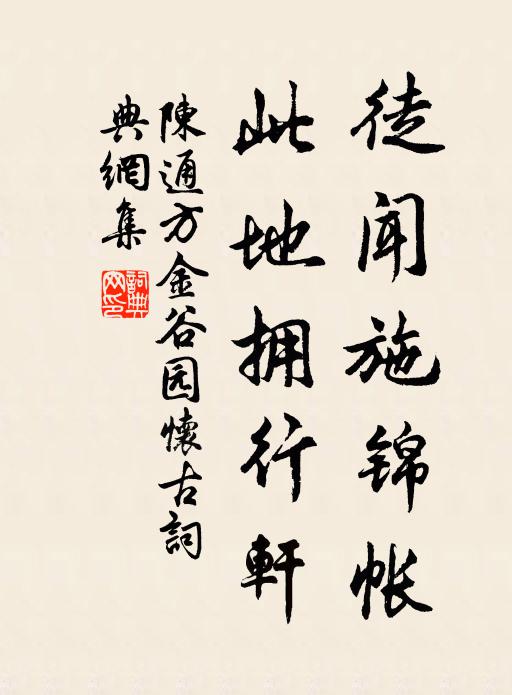 徒闻施锦帐
此地拥行軒
陳通方金谷园懷古詞
典網集
詞典
网印